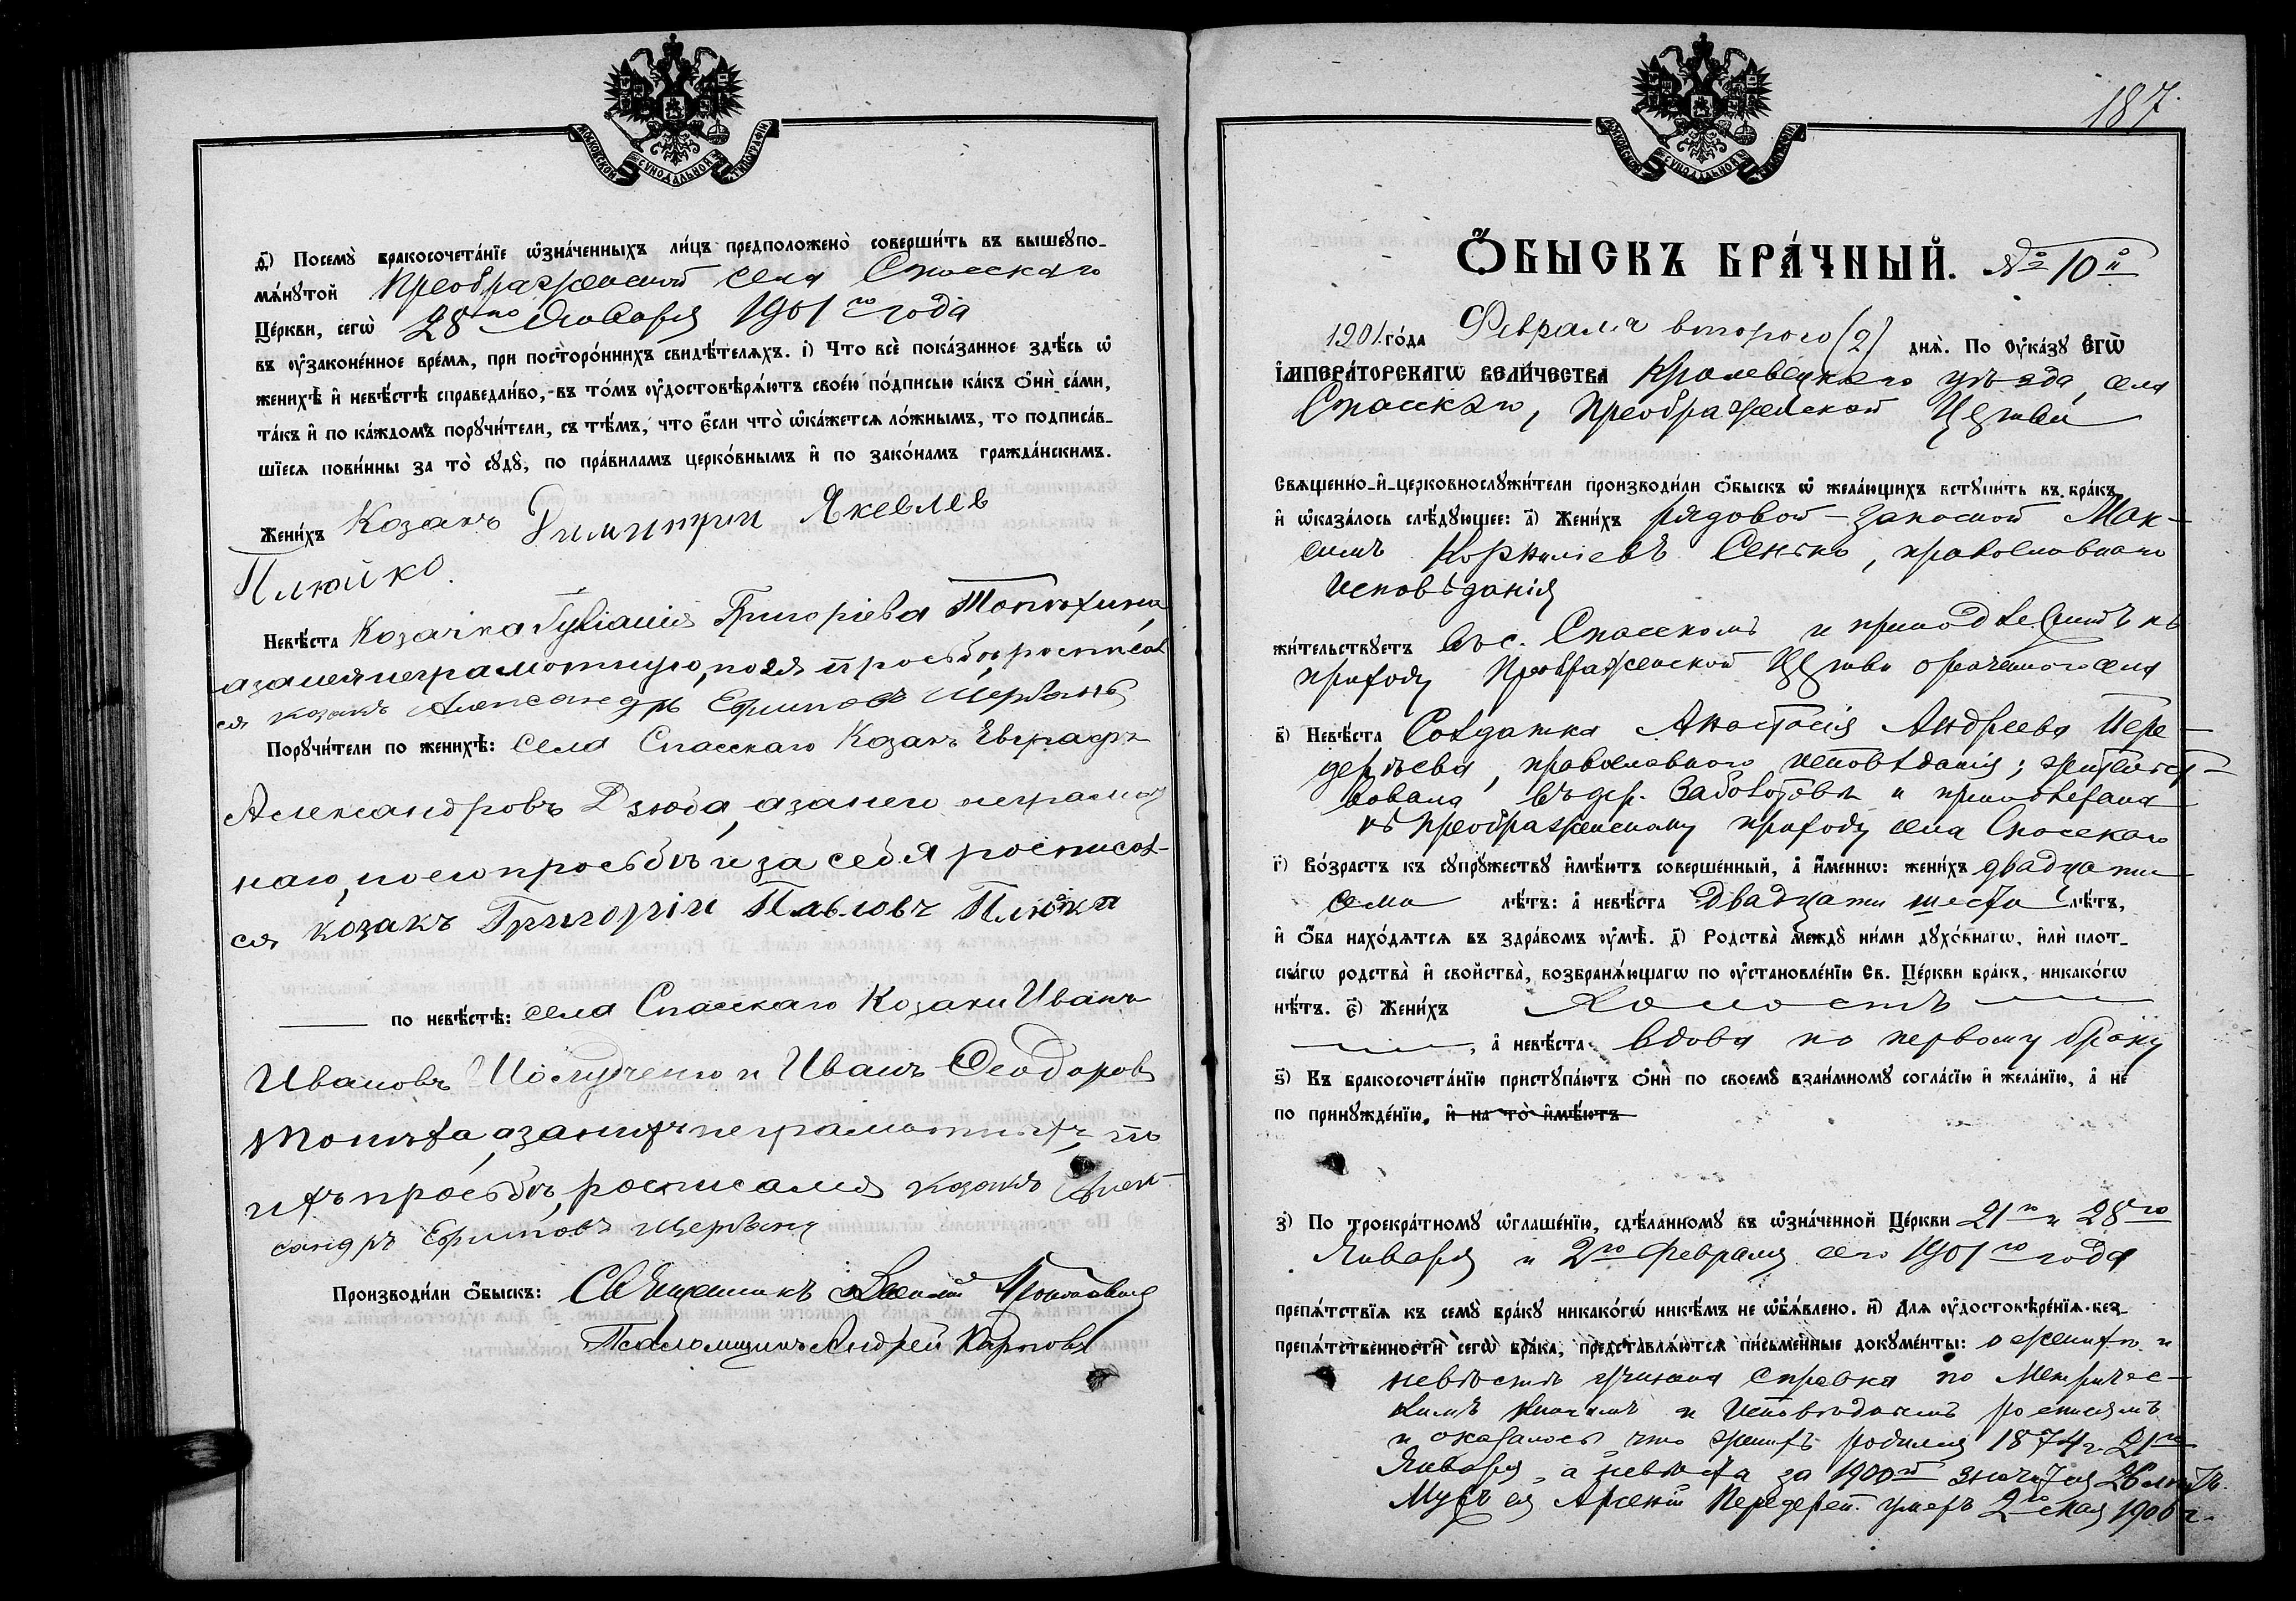 МОСКОВСКОЙ СѴНОДАЛЬНОЙ ТИПОГРАФІИ
д҃і) Посемꙋ̀ бракосочета́нїе ѡ҆зна́ченныхъ ли́цъ предположено̀ соверши́ть въ вышеꙋпо-
мѧ́нꙋтой Преображенской села Спасскаго
Це́ркви, сегѡ̀ 28го Января 1901го года
въ ᲂу҆законе́нное вре́мѧ, при посторо́ннихъ свидѣ́телѧхъ. і҃) Что всѐ пока́занное здѣ́сь ѡ҆
женихѣ̀ и҆ невѣ́стѣ справедли́во, въ то́мъ ᲂу҆достовѣрѧ́ютъ свое́ю по́дписью ка́къ ѻ҆нѝ са́ми,
та́къ и҆ по ка́ждомъ порꙋчи́тели, съ тѣ́мъ, что є҆́сли что̀ ѡ҆ка́жетсѧ ло́жнымъ, то подписа́в-
шїесѧ пови́нны за то̀ сꙋдꙋ̀, по пра́виламъ церко́внымъ и҆ по зако́намъ гражда́нскимъ.
Жени́хъ Козакъ Димитрій Якевлев
Плюйко.
Невѣ́ста Козачка Іуліанія Григоріева Топѣхина,
а за нея неграмотную, по ея просьбѣ, росписал
ся козакъ Александръ Ефимовъ Щербакъ
Порꙋчи́тели по женихѣ̀: Села Спасскаго Козакъ Евграфъ
Александровъ Дзюба, а за него неграмот
наго, по его просьбѣ и за себя росписал-
ся козакъ Григорій Павловъ Плюйко
по невѣ́стѣ: села Спасскаго Козаки Иванъ
Ивановъ и Иванъ Ѳеодоровъ
Топѣха, а за нихъ неграмотныхъ, по
ихъ просьбѣ, росписался козакъ Алек-
сандръ Ефимовъ Щербакъ
Производи́ли ѻ҆́быскъ: Священникъ Василій
Псаломщикъ Андрей Карповъ
187.
МОСКОВСКОЙ СѴНОДАЛЬНОЙ ТИПОГРАФІИ
Ѻ҆́БЫСКЪ БРА́ЧНЫЙ. № 10й
1901 го́да Февраля второго (2) днѧ̀. По ᲂу҆ка́зꙋ Є҆гѡ̀
І҆мпера́торскагѡ вели́чества Кролевецкаго уѣзда, села
Спасскаго, Преображенской Церкви
Свѧщенно-и҆-церковнослꙋжи́тели производи́ли ѻ҆́быскъ ѡ҆ жела́ющихъ встꙋпи́ть въ бра́къ
и҆ ѡ҆каза́лось слѣ́дꙋющее: а҃) Жени́хъ рядовой запасной Мак-
симъ Корниліевъ Сенько, православнаго
исповѣданія
жи́тельствꙋетъ въ с. Спасскомъ и принадлежитъ къ
приходу Преображенской Церкви означеннаго села
в҃) Невѣ́ста Солдатка Анастасія Андреева Пере-
дерѣева, православнаго исповѣданія; жительст-
вовала въ дер. Заболотовѣ и принадлежала
къ Преображенскому приходу села Спасскаго
г҃) Во́зрастъ къ сꙋпрꙋ́жествꙋ и҆мѣ́ютъ соверше́нный, а҆ и҆́менно: жени́хъ двадцати
семи лѣ́тъ: а҆ невѣ́ста двадцати шести лѣ́тъ,
и҆ ѻ҆́ба нахо́дѧтсѧ въ здра́вомъ ᲂу҆мѣ̀. д҃) Родства̀ междꙋ̀ ни́ми дꙋхо́внагѡ, и҆лѝ плот-
ска́гѡ родства̀ и҆ сво́йства, возбранѧ́ющагѡ по ᲂу҆становле́нїю Св. Це́ркви бра́къ, никако́гѡ
нѣ́тъ. є҃) Жени́хъ Холостъ
, а҆ невѣ́ста вдова по первому браку
ѕ҃) Къ бракосочета́нїю пристꙋпа́ютъ ѻ҆нѝ по своемꙋ̀ взаи́мномꙋ согла́сїю и҆ жела́нїю, а҆ не
по принꙋжде́нїю, и҆ на то̀ и҆мѣ́ютъ
з҃) По троекра́тномꙋ ѡ҆глаше́нїю, сдѣ́ланномꙋ въ ѡ҆зна́ченной Це́ркви 21го и 28го
Января и 2го Февраля сего 1901го года
препѧ́тствїѧ къ семꙋ̀ бра́кꙋ никако́гѡ никѣ́мъ не ѡ҆б̾ѧ́влено. и҃) Длѧ ᲂу҆достовѣре́нїѧ без-
препѧ́тственности сегѡ̀ бра́ка, представлѧ́ютсѧ пи́сьменные докꙋме́нты: о женихѣ и
невѣстѣ учинена справка по Метричес-
кимъ книгамъ и Исповѣднымъ росписямъ
и оказалось, что женихъ родился 1874 г. 21го
Января, а невѣста за 1900й значится 26 лѣтъ.
Мужъ ея Арсеній Передерей умеръ 2го мая 1900 г.